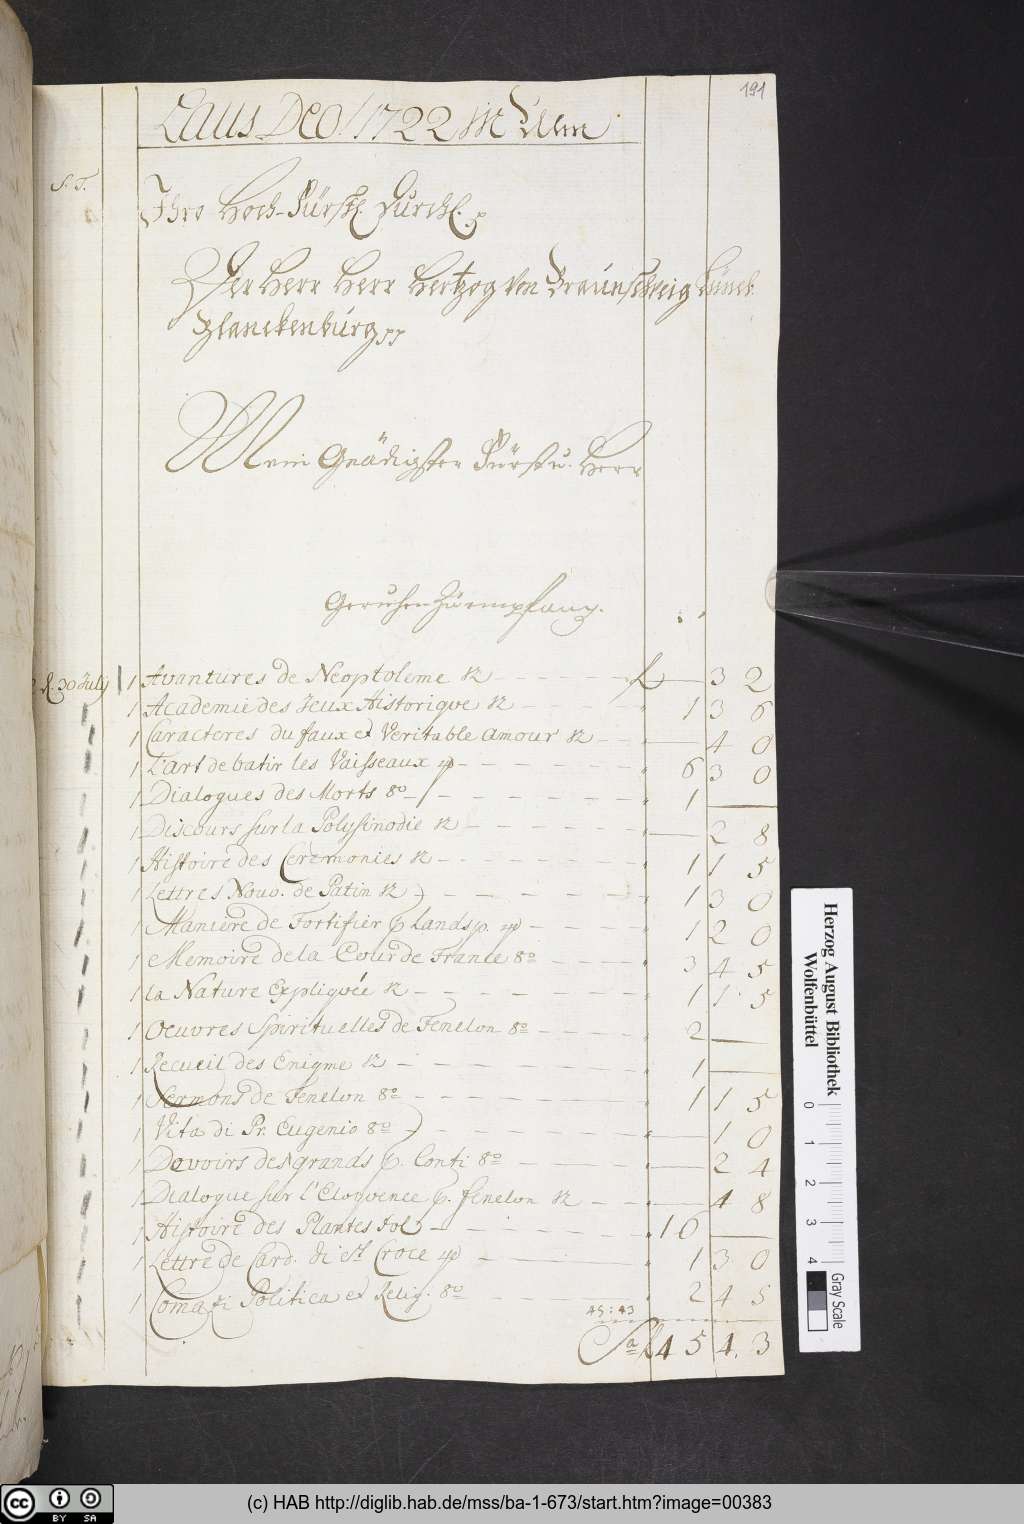 191
Laus Deo! 1722 in Ulm
S. T.
Ihro Hoch-Fürstl. Durchl. p
Der Herr Herr Hertzog Von Braunschweig Lüneb.
Blanckenburg pp
Mein Gnädigster Fürst u. Herr
Geruhen Zu empfang.
30 July 1 Avantures de Neoptoleme 12 f 32
1 Academie des Jeux Historique 12 1 36
1 Caracteres du faux et Veritable Amour 12 40
1 L'art de batir les Vaisseaux 4o 6 30
1 Dialogues des Morts 8o 1
1 Discours sur la Polysinodie 12 28
1 Histoire des Ceremonies 12 1 15
1 Lettres Nouv. de Patin 12 1 30
Maniere de Fortifier p. Landsp. 4o 1 20
1 Memoire de la Cour de France 8o 3 45
1 la Nature Expliquée 12 1 15
1 Oeuvres Spirituelles de Fenelon 8o 2
1 Recueil des Enigme 12 1
1 Sermons de Fenelon 8o 1 15
1 Vita di Pr. Eugenio 8o 10
1 Devoirs des grands p. Conti 8o 24
1 Dialogue sur l'Eloquence p. fenelon 12 48
1 Histoire des Plantes fol 16
1 Lettre de Card. di St Croce 4o 1 30
1 Comazi Politica et Relig. 8o 2 45
45:43
Sa f 45 43
Herzog August Bibliothek
Wolfenbüttel
0 1 2 3 4
Gray Scale
cc BY SA
(c) HAB http://diglib.hab.de/mss/ba-1-673/start.htm?image=00383